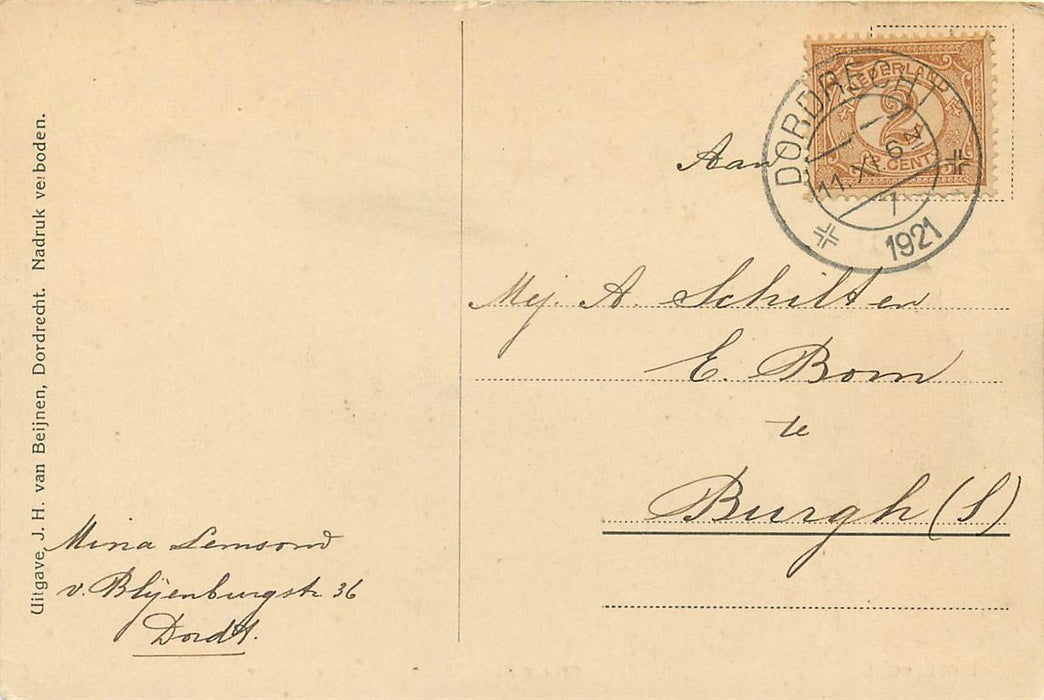 Uitgave J. H. van Beijnen, Dordrecht. Nadruk verboden.
NEDERLAND
2
CENT
DORDRECHT
11.XI 6N
1
1921
Aan
Mej. A. Schilten
E. Bom
te
Burgh (S)
Mina Lemsom
v. Blijenburgstr 36
Dordt.